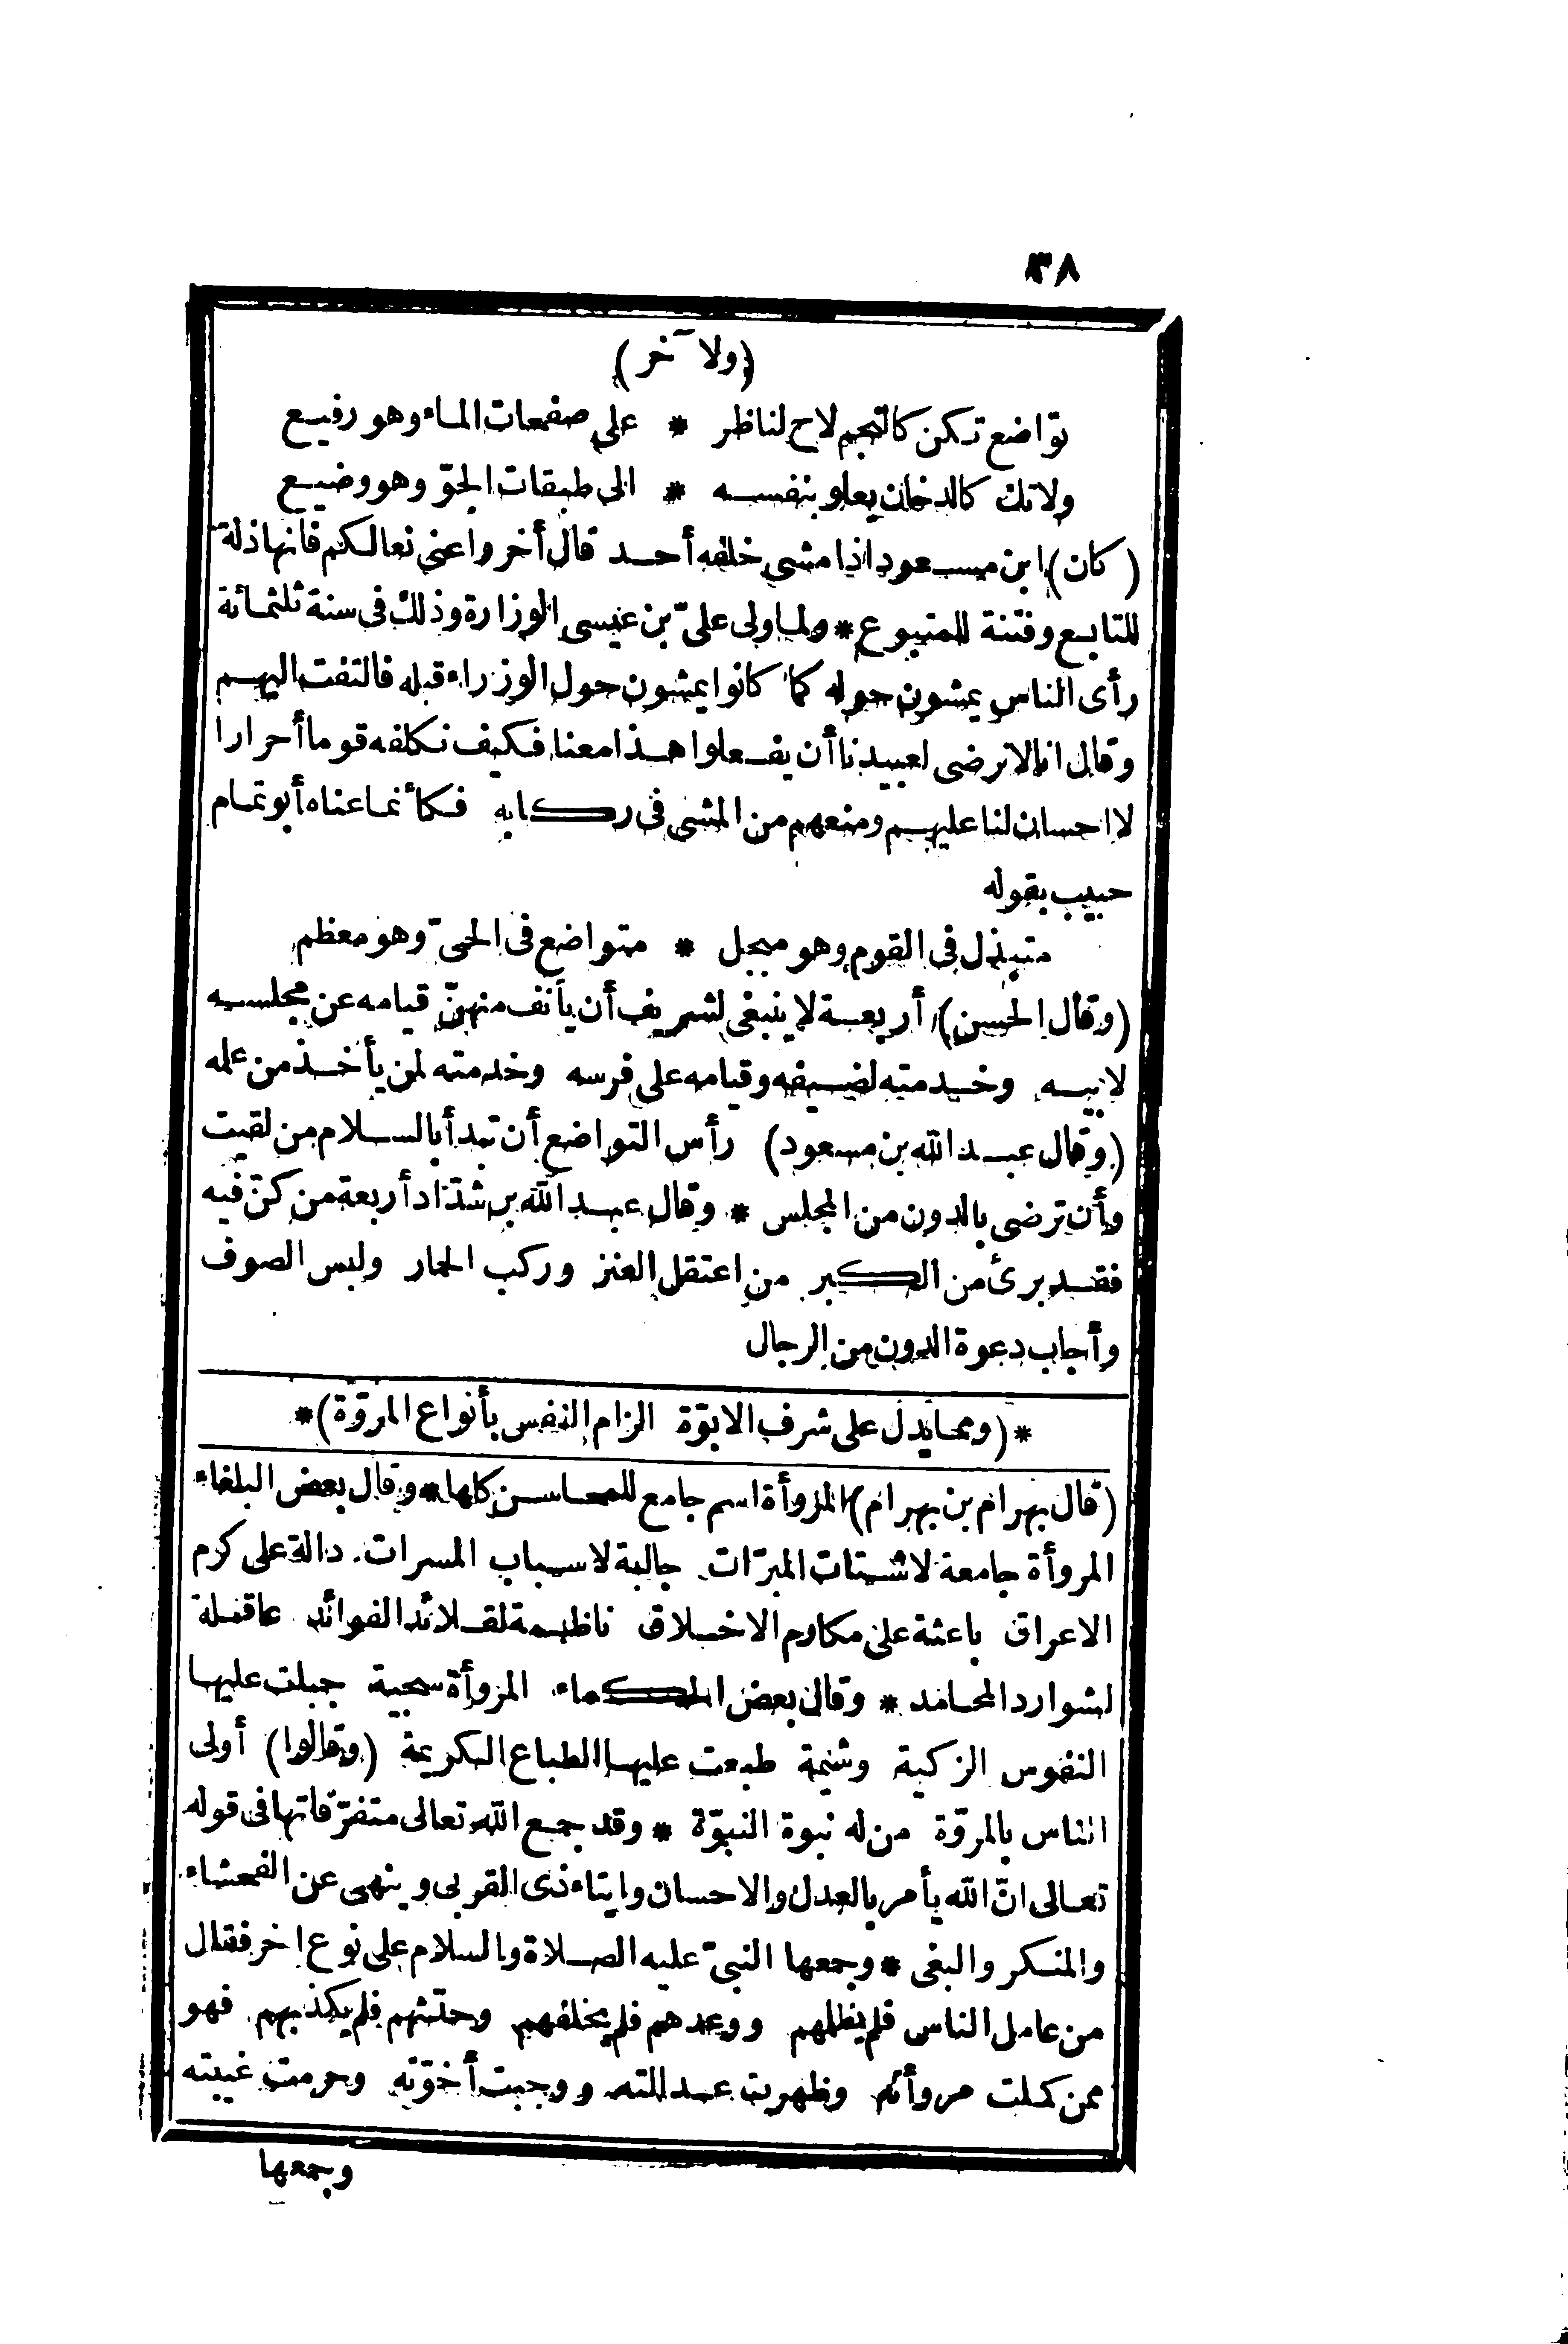 ٣٨
(ولا خر)
تواضع تكن كالنجم لاح لناظر * على صفحات الماء وهو رفيع
ولا تك كالدخان يعلو بنفسه * الى طبقات الجوّ وهو وضيع
(كان) ابن مسعود اذا مشى خلفه أحد قال أخروا عنى نعالكم فانها ذلة
للتابع وفتنة للمتبوع * ولما ولى علىّ بن عيسى الوزارة وذلك فى سنة ثلثمائة
رأى الناس يمشون حوله كما كانوا يمشون حول الوزراء قبله فالتفت اليهم
وقال انا لا نرضى لعبيدنا أن يفعلوا هذا معنا فكيف نكلفه قوما أحرارا
لا احسان لنا عليهم ومنعهم من المشى فى ركابه فكأنما عناه أبو تمام
حبيب بقوله
متبذل فى القوم وهو مبجل * متواضع فى الحىّ وهو معظم
(وقال الحسن) أربعة لا ينبغى لشريف أن يأنف منهنّ قيامه عن مجلسه
لابيه وخدمته لضيفه وقيامه على فرسه وخدمته لمن يأخذ من علمه
(وقال عبد الله بن مسعود) رأس التواضع أن تبدأ بالسلام من لقيت
وأن ترضى بالدون من المجلس * وقال عبد الله بن شدّاد أربعة من كنّ فيه
فقد برئ من الكبر من اعتقل العنز وركب الحمار ولبس الصوف
وأجاب دعوة الدون من الرجال
*(ومما يدل على شرف الابوّة الزام النفس بأنواع المروّة)*
(قال بهرام بن بهرام) المروأة اسم جامع للمحاسن كلها * وقال بعض البلغاء
المروأة جامعة لاشتات المبرّات جالبة لاسباب المسرات دالة على كرم
الاعراق باعثة على مكارم الاخلاق ناظمة لقلائد الفوائد عاقلة
لشوارد المحامد * وقال بعض الحكماء المروأة سجية جبلت عليها
النفوس الزكية وشيمة طبعت عليها الطباع الكريمة (وقالوا) أولى
الناس بالمروّة من له نبوة النبوّة * وقد جمع الله تعالى متفرّقاتها فى قوله
تعالى انّ الله يأمر بالعدل والاحسان وايتاء ذى القربى وينهى عن الفحشاء
والمنكر والبغى * وجمعها النبىّ عليه الصلاة والسلام على نوع اخر فقال
من عامل الناس فلم يظلمهم ووعدهم فلم يخلفهم وحدّثهم فلم يكذبهم فهو
ممن كملت مروأته وظهرت عدالته ووجبت أخوّته وحرمت غيبته
وجمعها